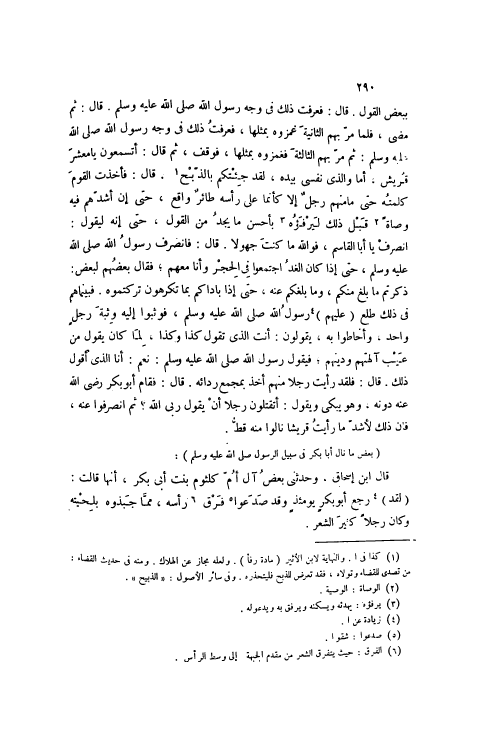 ٢٩٠
ببعض القول . قال : فعرفت ذلك فى وجه رسول اللّه صلى اللّه عليه وسلم . قال : ثم
مضى ، فلما مرّ بهم الثانيةَ غمزوه بمثلها ، فعرفتُ ذلك فى وجه رسول اللّه صلى اللّه
عليه وسلم : ثم مرّ بهم الثالثةَ فغمزوه بمثلها ، فوقف ، ثم قال : أتسمعون يامعشرَ
قريش ، أما والذى نفسى بيده ، لقد جئتُكم بالذّبْح١ . قال : فأخذت القومَ
كلمتُه حتى مامنهم رجلٌ إلا كأنما على رأسه طائرٌ واقع ، حتى إن أشدّهم فيه
وصاةً٢ قَبْل ذلك ليَرْفَؤُه٣ بأحسن ما يجدُ من القول ، حتى إنه ليقول :
انصرفْ يا أبا القاسم ، فواللّه ما كنتَ جهولا . قال : فانصرف رسولُ اللّه صلى اللّه
عليه وسلم ، حتى إذا كان الغدُ اجتمعوا فى الحِجْر وأنا معهم ؛ فقال بعضُهم لبعض :
ذكرتم ما بلغ منكم ، وما بلغكم عنه ، حتى إذا باداكم بما تكرهون تركتموه . فبينماهم
فى ذلك طلع ( عليهم )٤ رسولُ اللّه صلى اللّه عليه وسلم ، فوثبوا إليه وثبةَ رجلٍ
واحد ، وأحاطوا به ، يقولون : أنت الذى تقول كذا وكذا ، لِمَا كان يقول من
عَيْب آلهتهم ودينهم ؛ فيقول رسول اللّه صلى اللّه عليه وسلم : نعم : أنا الذى أقول
ذلك . قال : فلقد رأيت رجلا منهم أخذ بمجمع ردائه . قال : فقام أبوبكر رضى اللّه
عنه دونه ، وهو يبكى ويقول : أتقتلون رجلا أنْ يقول ربى اللّه ؟ ثم انصرفوا عنه ،
فان ذلك لأشدّ ما رأيتُ قريشا نالوا منه قطُّ .
( بعض ما نال أبا بكر فى سبيل الرسول صلى اللّه عليه وسلم ) :
قال ابن إسحاق . وحدثنى بعضُ آل أُمّ كلثوم بنت أبى بكر ، أنها قالت :
( لقد )٤ رجع أبوبكر يومئذٍ وقد صَدَعوا٥ فَرْق٦ رأسه ، ممَّا جَبَذوه بلِحْيَته
وكان رجلاً كثيرَ الشَّعر .
(١) كذا فى ا . والنهاية لابن الأثير ( مادة رفأ ) . ولعله مجاز عن الهلاك . ومنه فى حديث القضاء :
من تصدى للقضاء وتولاه ، فقد تعرض للذبح فليتحذره . وفى سائر الأصول : « الذبيح » .
(٢) الوصاة : الوصية .
(٣) يرفؤه : يهدئه ويسكنه ويرفق به ويدعوله .
(٤) زيادة عن ا .
(٥) صدعوا : شقوا .
(٦) الفرق : حيث يتفرق الشعر من مقدم الجبهة إلى وسط الرأس .